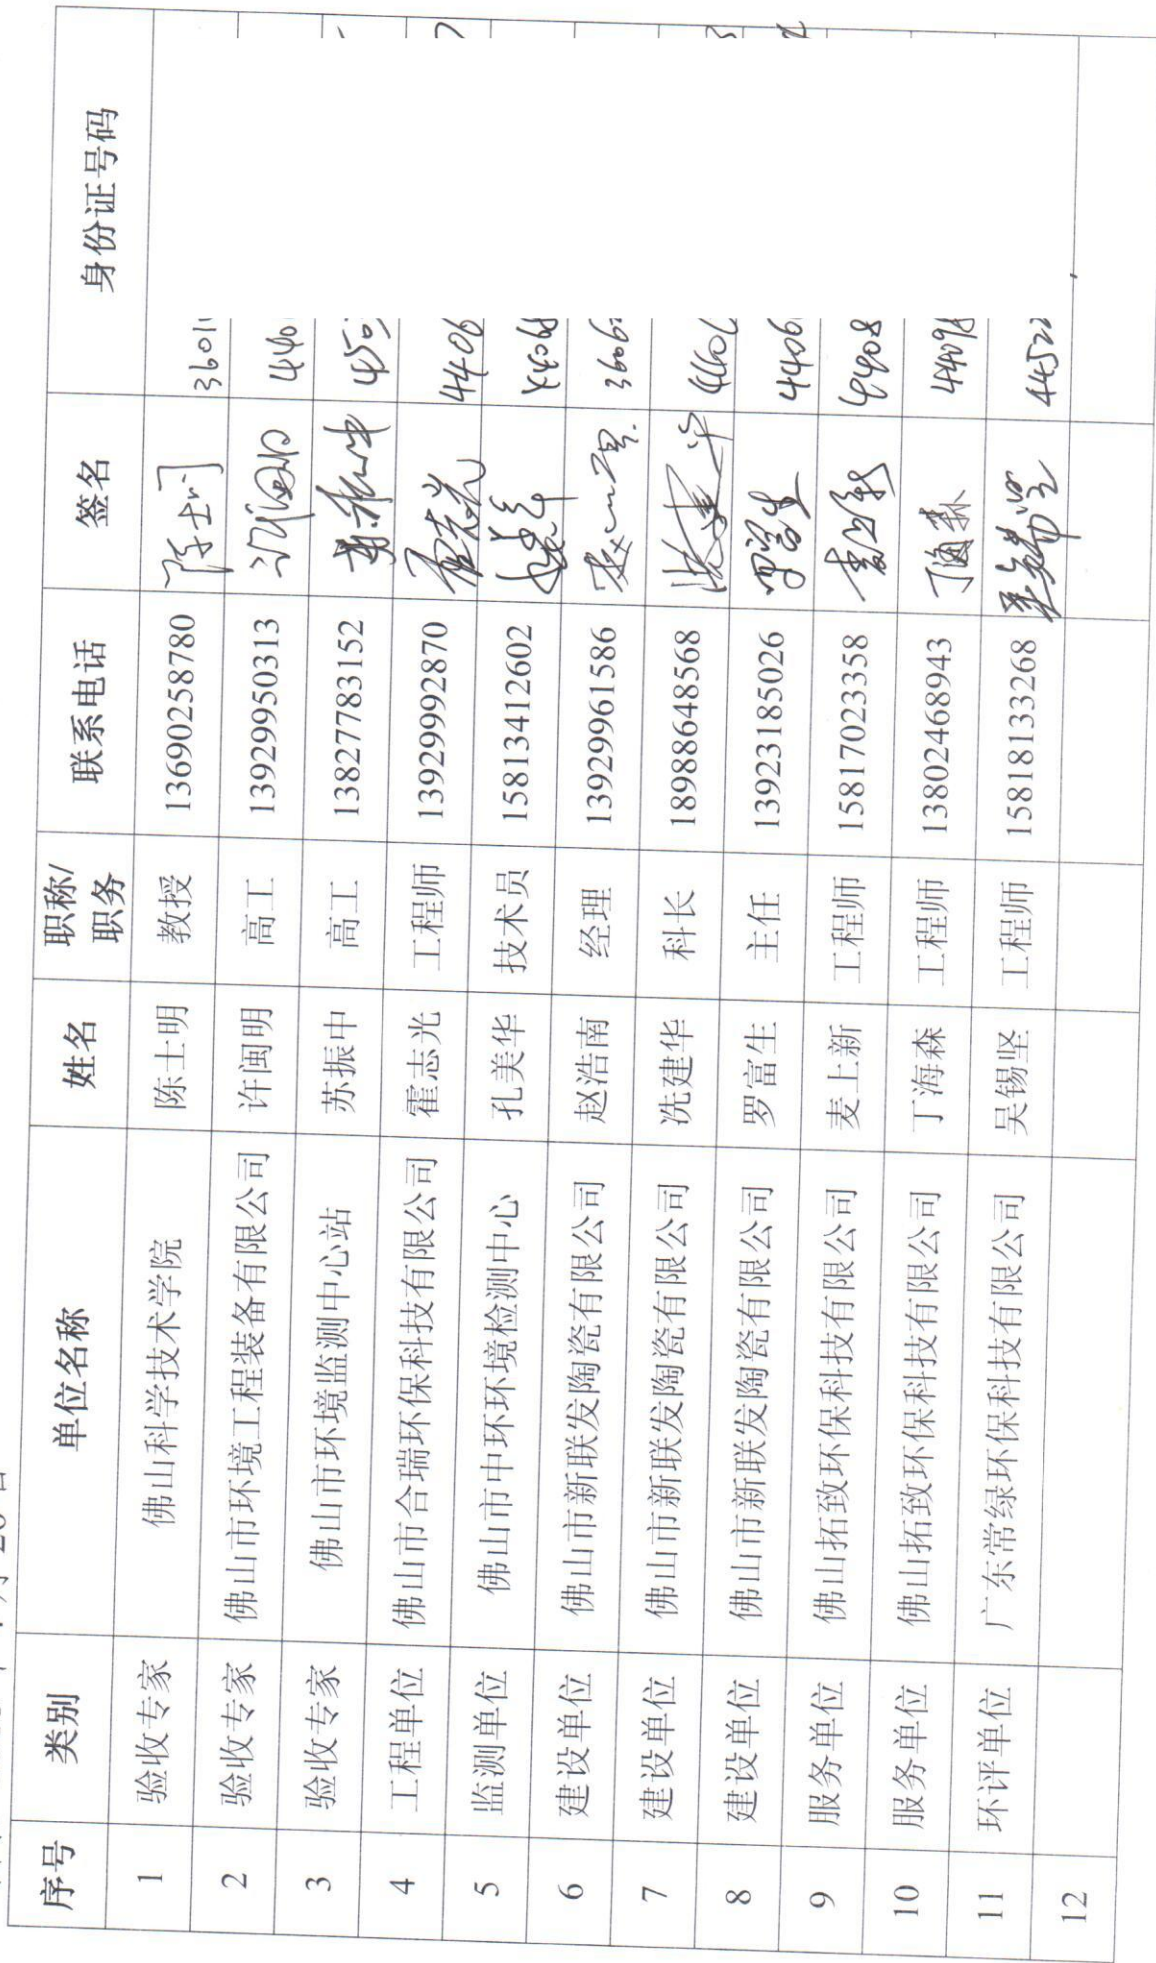 序号 类别 单位名称 姓名 职称/职务 联系电话 签名 身份证号码
1 验收专家 佛山科学技术学院 陈士明 教授 13690258780 3601
2 验收专家 佛山市环境工程装备有限公司 许闽明 高工 13929950313 440
3 验收专家 佛山市环境监测中心站 苏振中 高工 13827783152 450
4 工程单位 佛山市合瑞环保科技有限公司 霍志光 工程师 13929992870 霍志光 4406
5 监测单位 佛山市中环环境检测中心 孔美华 技术员 15813412602 44068
6 建设单位 佛山市新联发陶瓷有限公司 赵浩南 经理 13929961586 3606
7 建设单位 佛山市新联发陶瓷有限公司 冼建华 科长 18988648568 440
8 建设单位 佛山市新联发陶瓷有限公司 罗富生 主任 13923185026 4406
9 服务单位 佛山拓致环保科技有限公司 麦上新 工程师 15817023358 麦上新 4408
10 服务单位 佛山拓致环保科技有限公司 丁海森 工程师 13802468943 丁海森 44098
11 环评单位 广东常绿环保科技有限公司 吴锡坚 工程师 15818133268 吴锡坚 44522
12